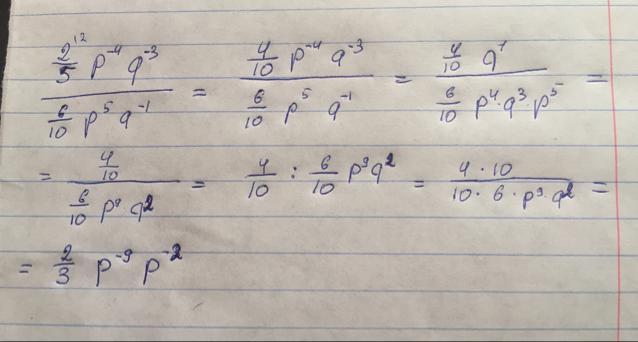 \frac{\frac{2^{12}}{5} p^{-4} q^{-3}}{\frac{6}{10} p^5 q^{-1}} = \frac{\frac{4}{10} p^{-4} q^{-3}}{\frac{6}{10} p^5 q^{-1}} = \frac{\frac{4}{10} q^1}{\frac{6}{10} p^4 \cdot q^3 \cdot p^5} =
= \frac{\frac{4}{10}}{\frac{6}{10} p^9 q^2} = \frac{4}{10} : \frac{6}{10} p^9 q^2 = \frac{4 \cdot 10}{10 \cdot 6 \cdot p^9 \cdot q^2} =
= \frac{2}{3} p^{-9} p^{-2}